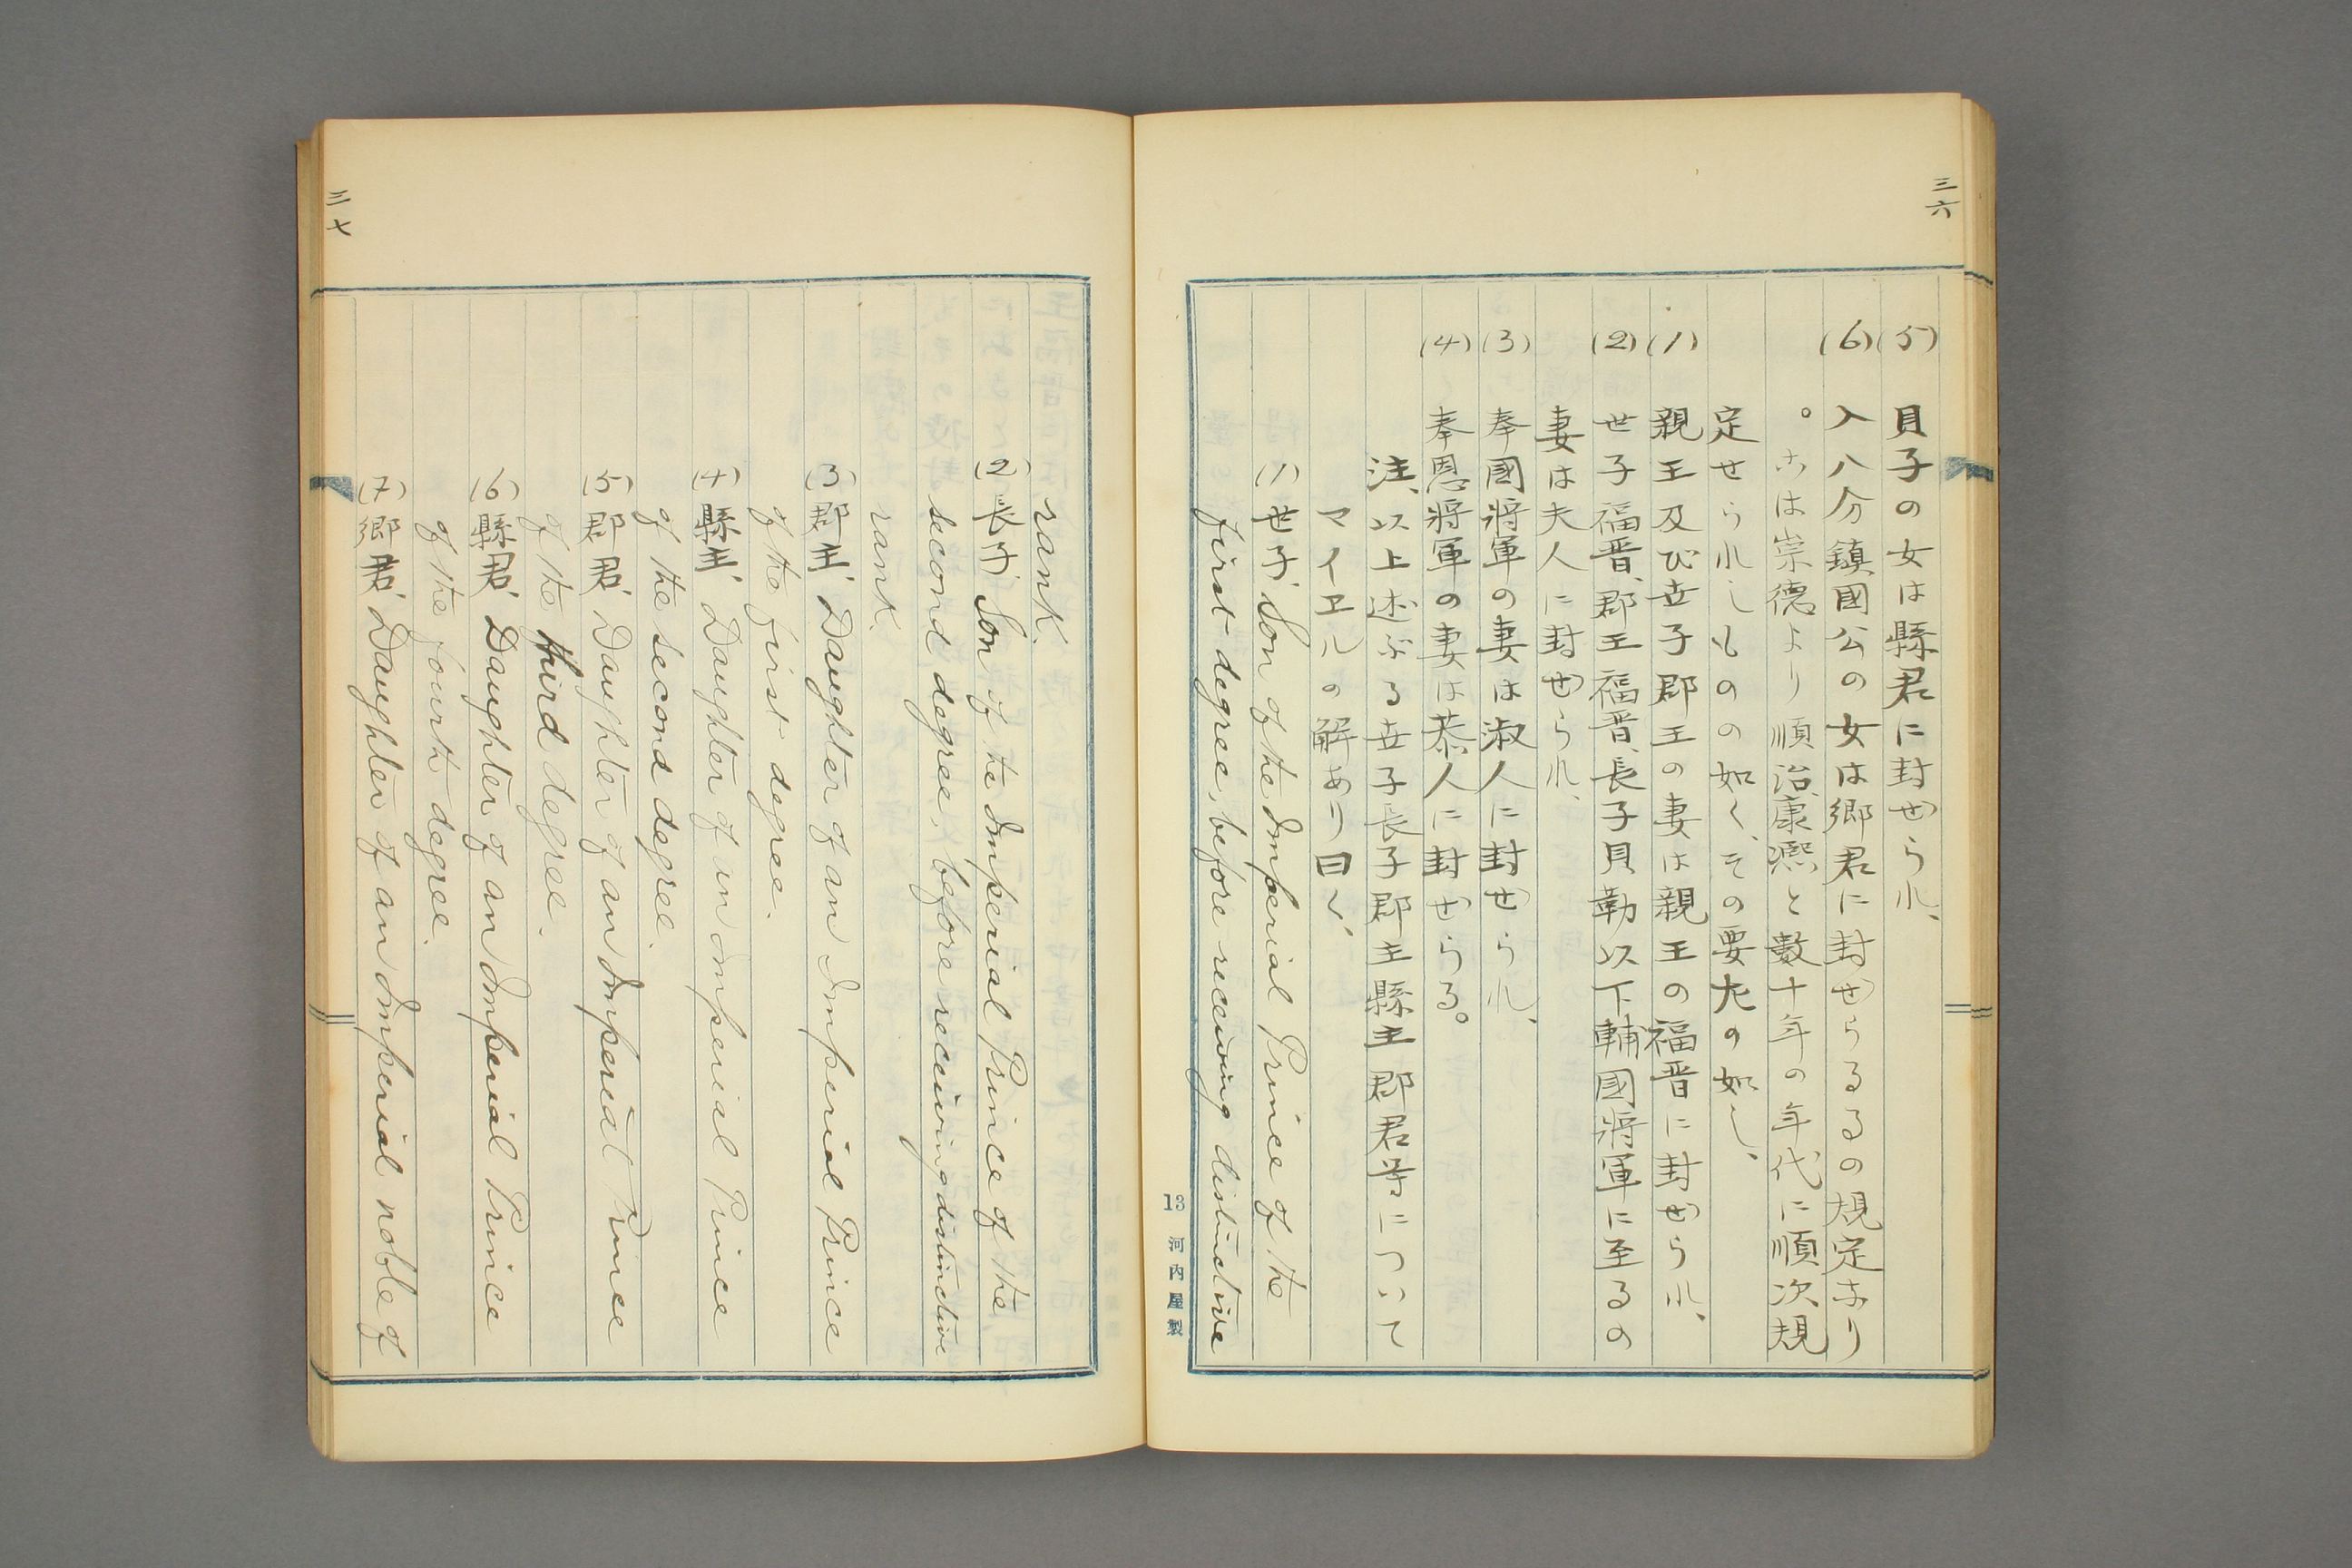 三六
(5) 貝子の女は縣君に封せられ、
(6) 入八分鎮國公の女は郷君に封せらるるの規定あり
。こは崇德より順治、康熙と數十年の年代に順次規
定せられしものの如く、その要左の如し、
(1) 親王及び世子郡王の妻は親王の福晋に封せられ、
(2) 世子福晋、郡王福晋、長子貝勒以下輔國將軍に至るの
妻は夫人に封せられ、
(3) 奉國將軍の妻は淑人に封せられ、
(4) 奉恩將軍の妻は恭人に封せらる。
注、以上述ぶる世子長子郡主縣主郡君等について
マイヱルの解あり曰く、
(1) 世子, Son of the Imperial Prince of the
first degree, before receiving distinctive
13 河内屋製
三七
rank.
(2) 長子, Son of the Imperial Prince of the
second degree, before receiving distinctive
rank.
(3) 郡主, Daughter of an Imperial Prince
of the first degree.
(4) 縣主, Daughter of an Imperial Prince
of the second degree.
(5) 郡君, Daughter of an Imperial Prince
of the third degree.
(6) 縣君, Daughter of an Imperial Prince
of the fourth degree.
(7) 郷君, Daughter of an Imperial noble of